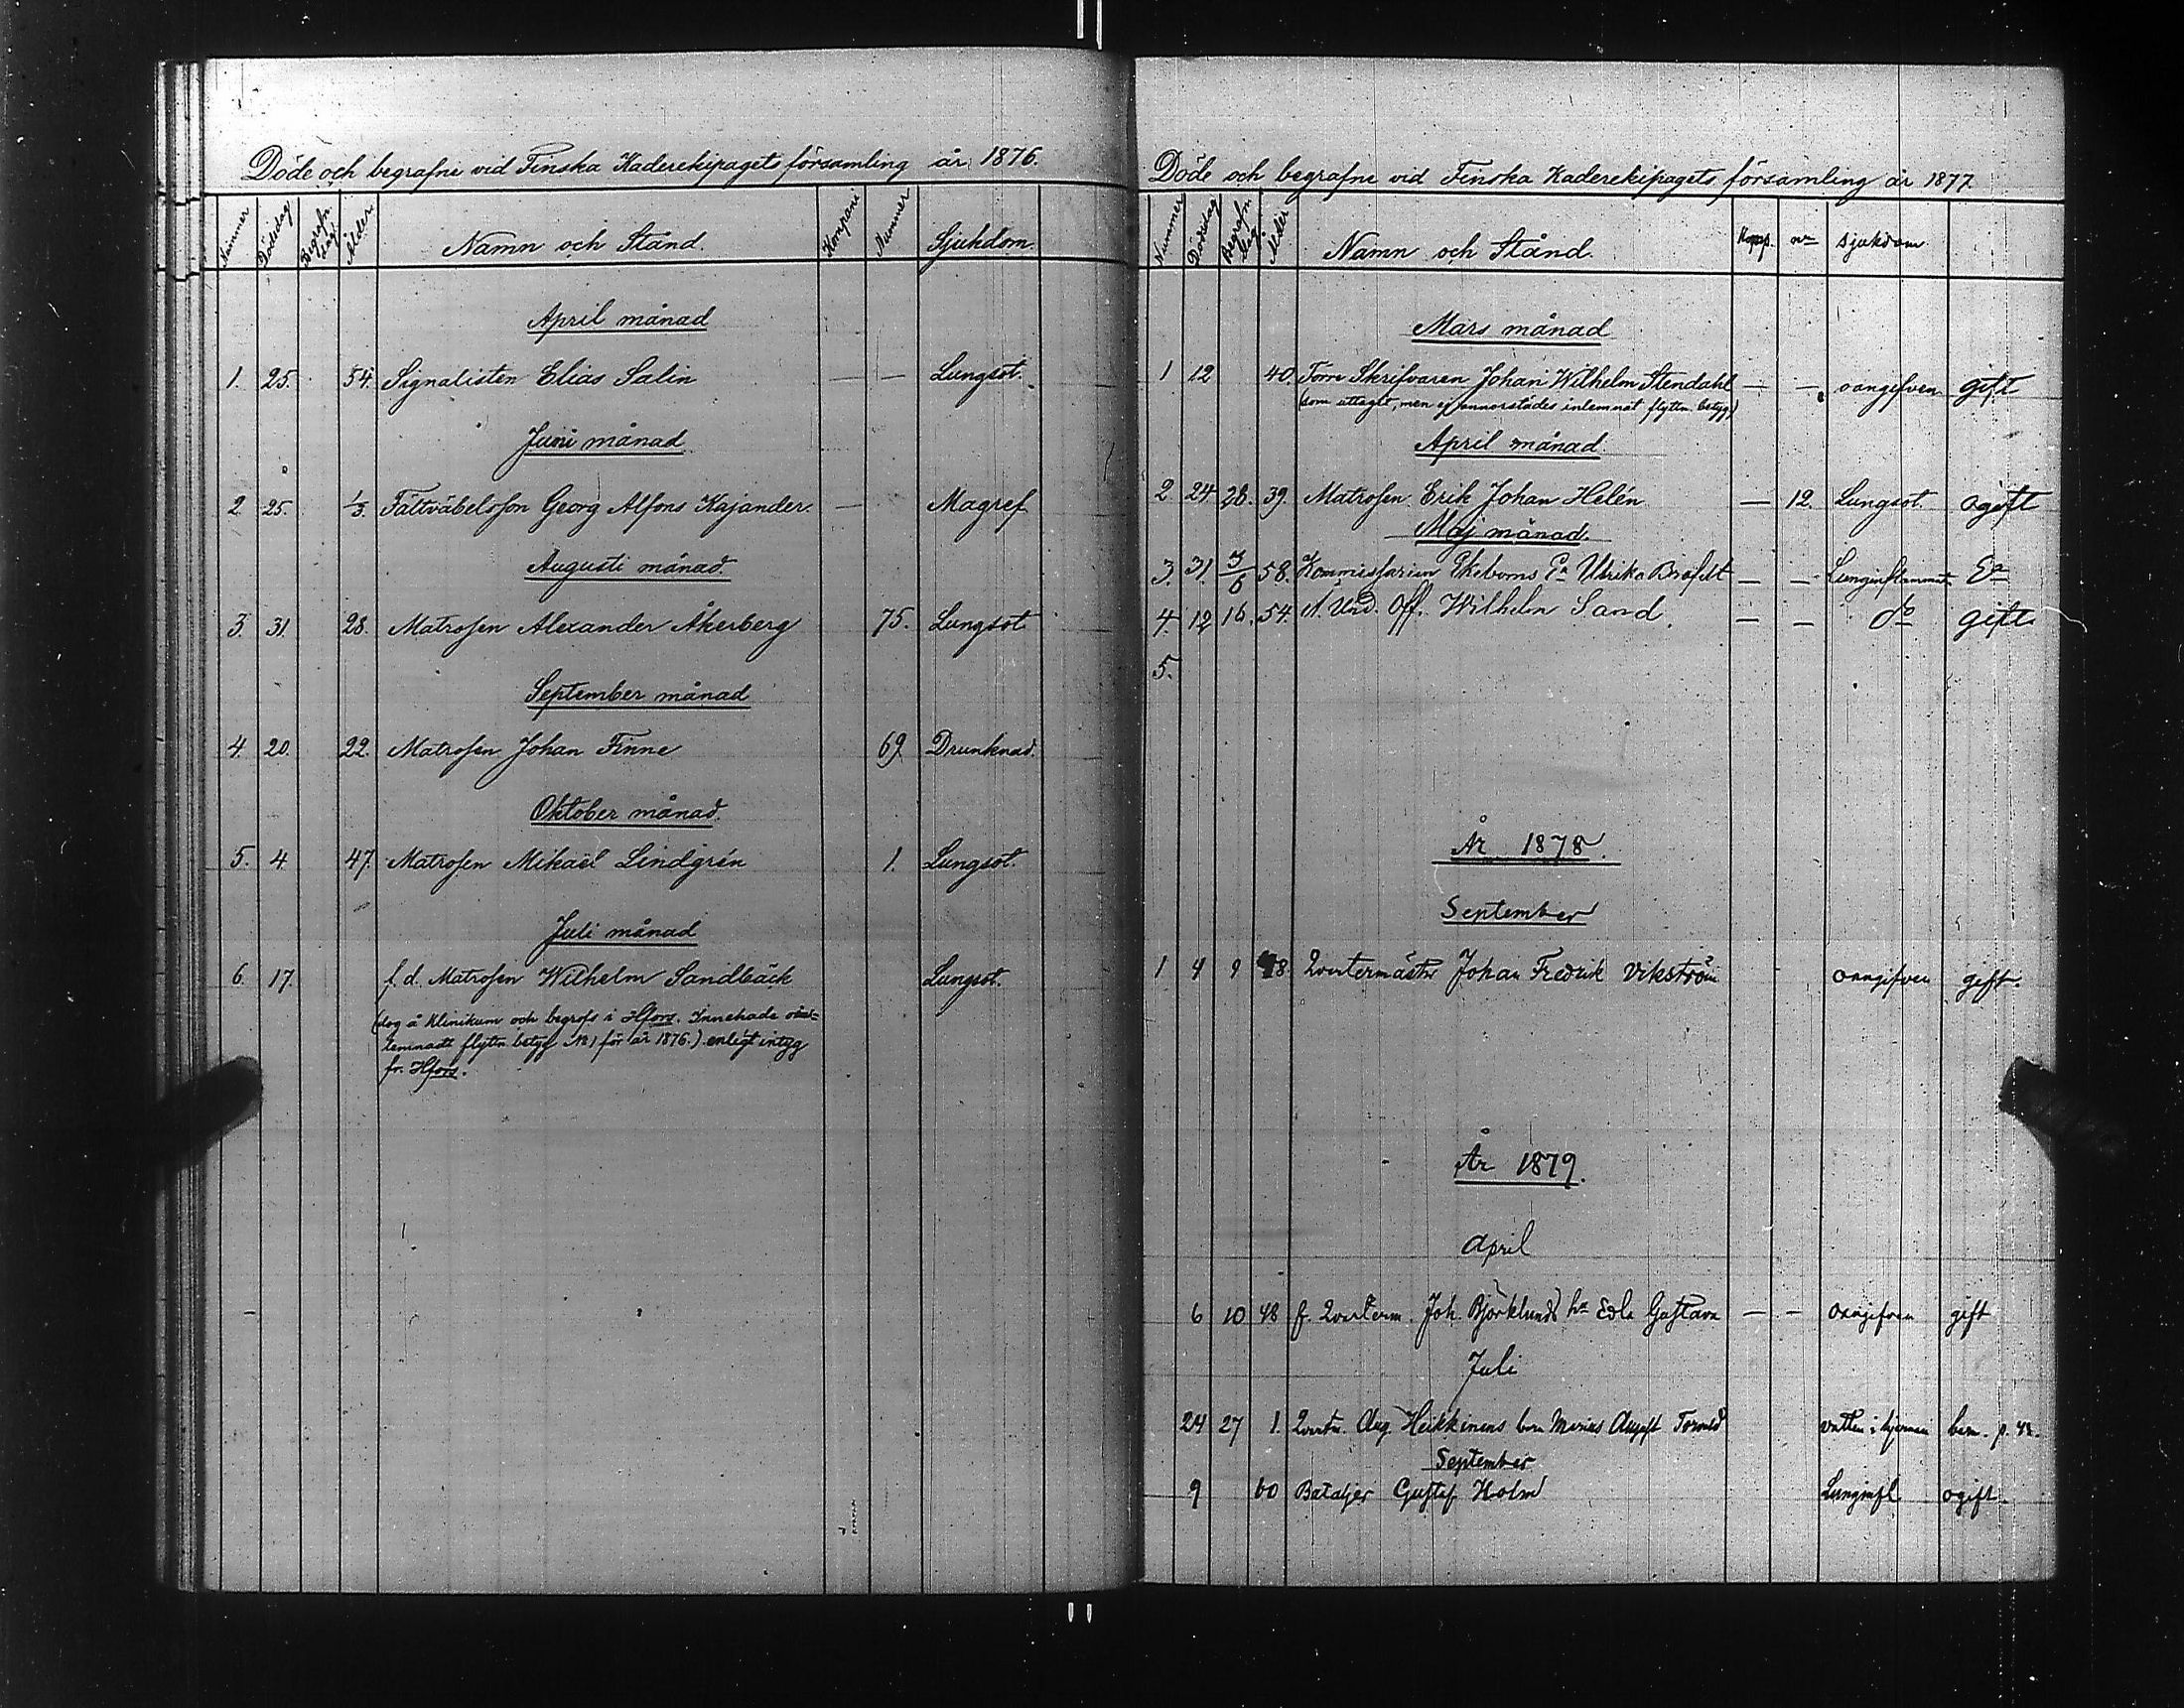 Döde och begrafne vid Finska Kaderekipagets församling år 1876.
Nummer Dödsdag Begrafn. dag Ålder Namn och Stånd. Kompani Nummer Sjukdom.
April månad
1. 25. 54. Signalisten Elias Salin — — Lungsot.
Juni månad
2 25. 1/3. Fältväbelsson Georg Alfons Kajander. — Magref
Augusti månad.
3. 31. 28. Matrosen Alexander Åkerberg 75. Lungsot
September månad
4. 20. 22. Matrosen Johan Finne 69 Drunknad.
Oktober månad.
5. 4. 47. Matrosen Mikaël Lindgrén 1. Lungsot.
Juli månad
6. 17. f. d. Matrosen Wilhelm Sandbäck Lungsot.
(dog å Klinikum och begrofs i Hfors. Innehade oin-
lemnadt flyttn. betyg № 1 för år 1876.) enligt intyg
fr. Hfors.
Döde och begrafne vid Finska Kaderekipagets församling år 1877
Nummer Dödsdag Begrafn. dag Ålder Namn och Stånd. Komp. sjukdom
Mars månad
1 12 40. Skrifvaren Johan Wilhelm Stendahl — — oangifven gift
(som uttagit, men ej annorstädes inlemnat flyttn. betyg)
April månad
2 24 28. 39. Matrosen Erik Johan Helén — 12. Lungsot. ogift
Maj månad.
3. 31. 3/6 58. Kommissarien Ekeboms Ea Ulrika Brofelt — — Lunginflammat. Ea
4. 12 16. 54. Und. Off. Wilhelm Sand. — — do gift
5.
År 1878.
September
1 4 9 48. Qvartermästar Johan Fredrik Vikström oangifven gift.
År 1879.
April
6 10 48 f. Qvarterm. Joh. Björklunds ha Edla Gustava — — oangifven gift
Juli
24 27 1. Qvartm. Aug. Heikkinens barn Marius August vatten i hjernan barn. p. 42.
September
9 60 Bataljer Gustaf Holm Lunginfl. ogift.